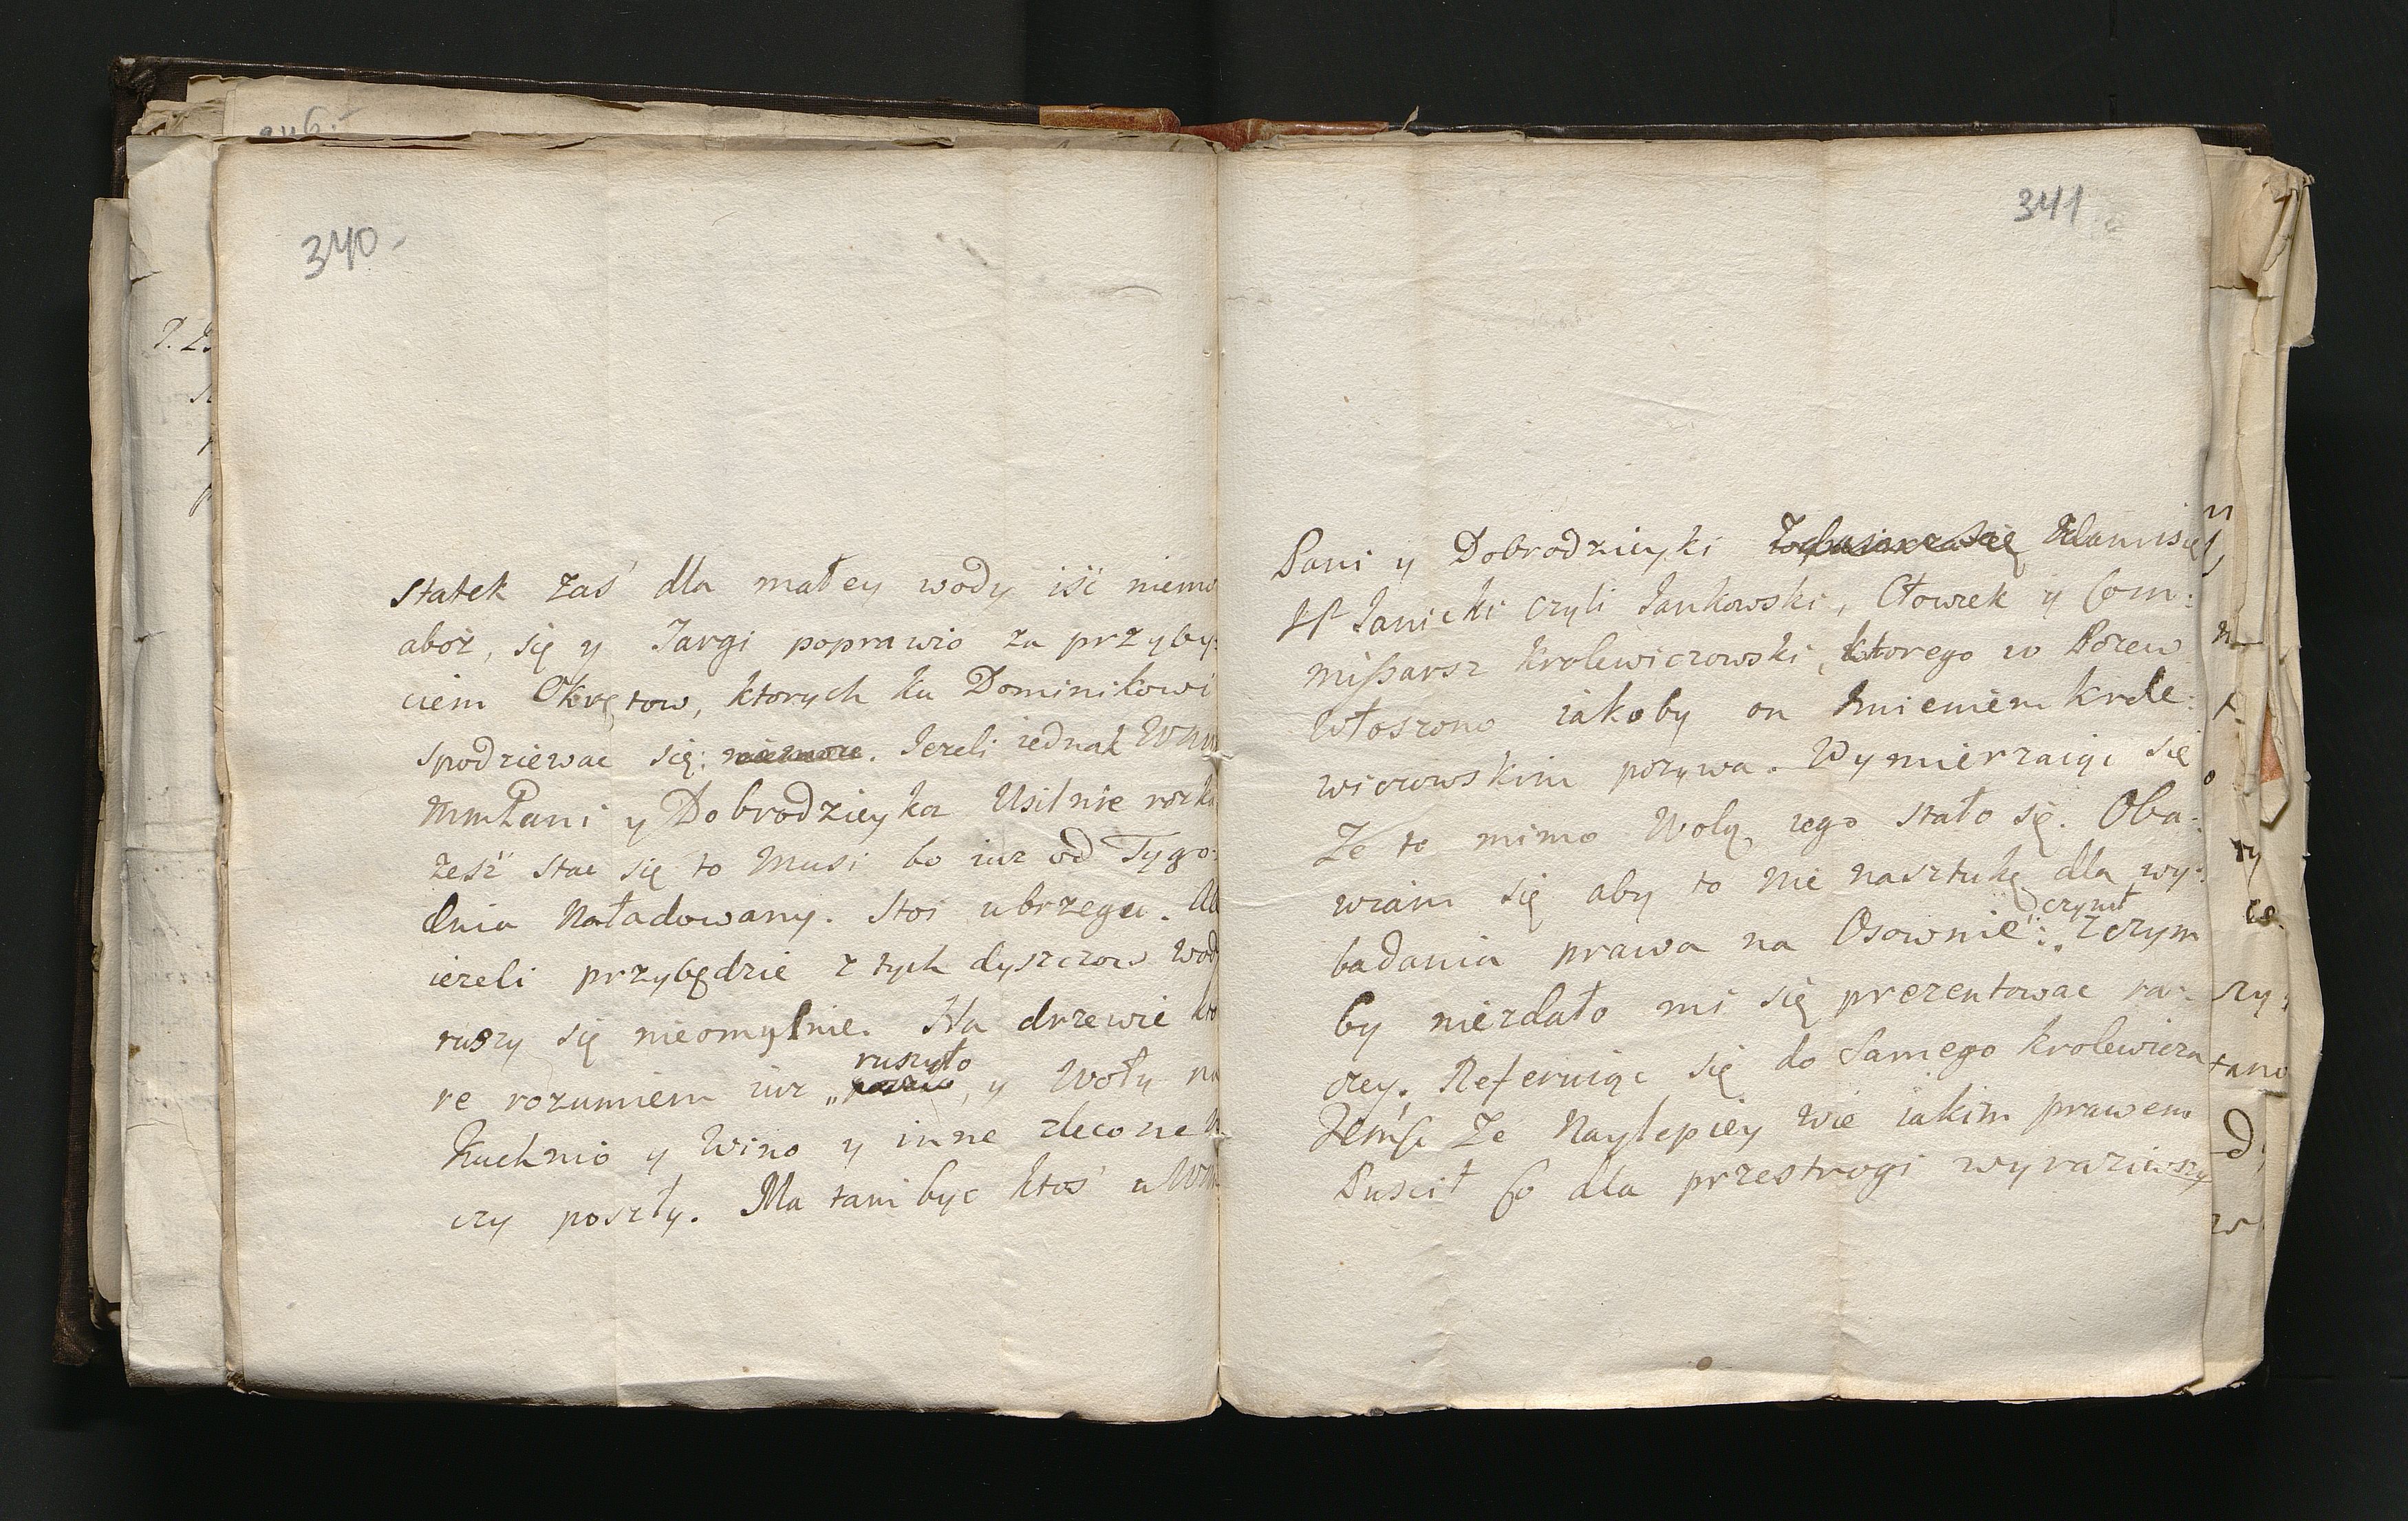 340.
statek zaś dla małey wody iść niemo
aboż, się y Targi poprawio za przyby:
ciem Okrętow, ktorych ku Dominikowi
spodziewac się: Jezeli iednak WM
MmPani y Dobrodzieyka Usilnie rozka
żesz stac się to Musi bo iuz od Tygo:
dnia Naładowany. Stoi ubrzegu.
iezeli przybędzie z tych dyszczow wod
ruszy się nieomylnie. Na drzewie kto
re rozumiem iuz „ ruszyło, y Woły na
Kuchnio y Wino y inne zlecone
czy poszły. Ma tam byc ktoś u
341
Pani y Dobrodzieyki Zdamisię
Janicki czyli Jankowski, Człowiek y Com:
mißarsz Krolewiczowski, ktorego w Pozew
Włoszono iakoby on Imieniem Krole:
wiczowskim pozywa. Wymierzaiąc się
Ze to mimo Wolą iego stało się. Oba:
wiam się aby to nie nasztukę dla wy:
badania prawa na Osownie: czynił „ Zczym
by niezdało mi się prezentowac ra:
czey. Referuiąc się do Samego Krolewicza
Jemsci Ze Naylepiey wie iakim prawem
Puscił Co dla przestrogi wyraziwszy